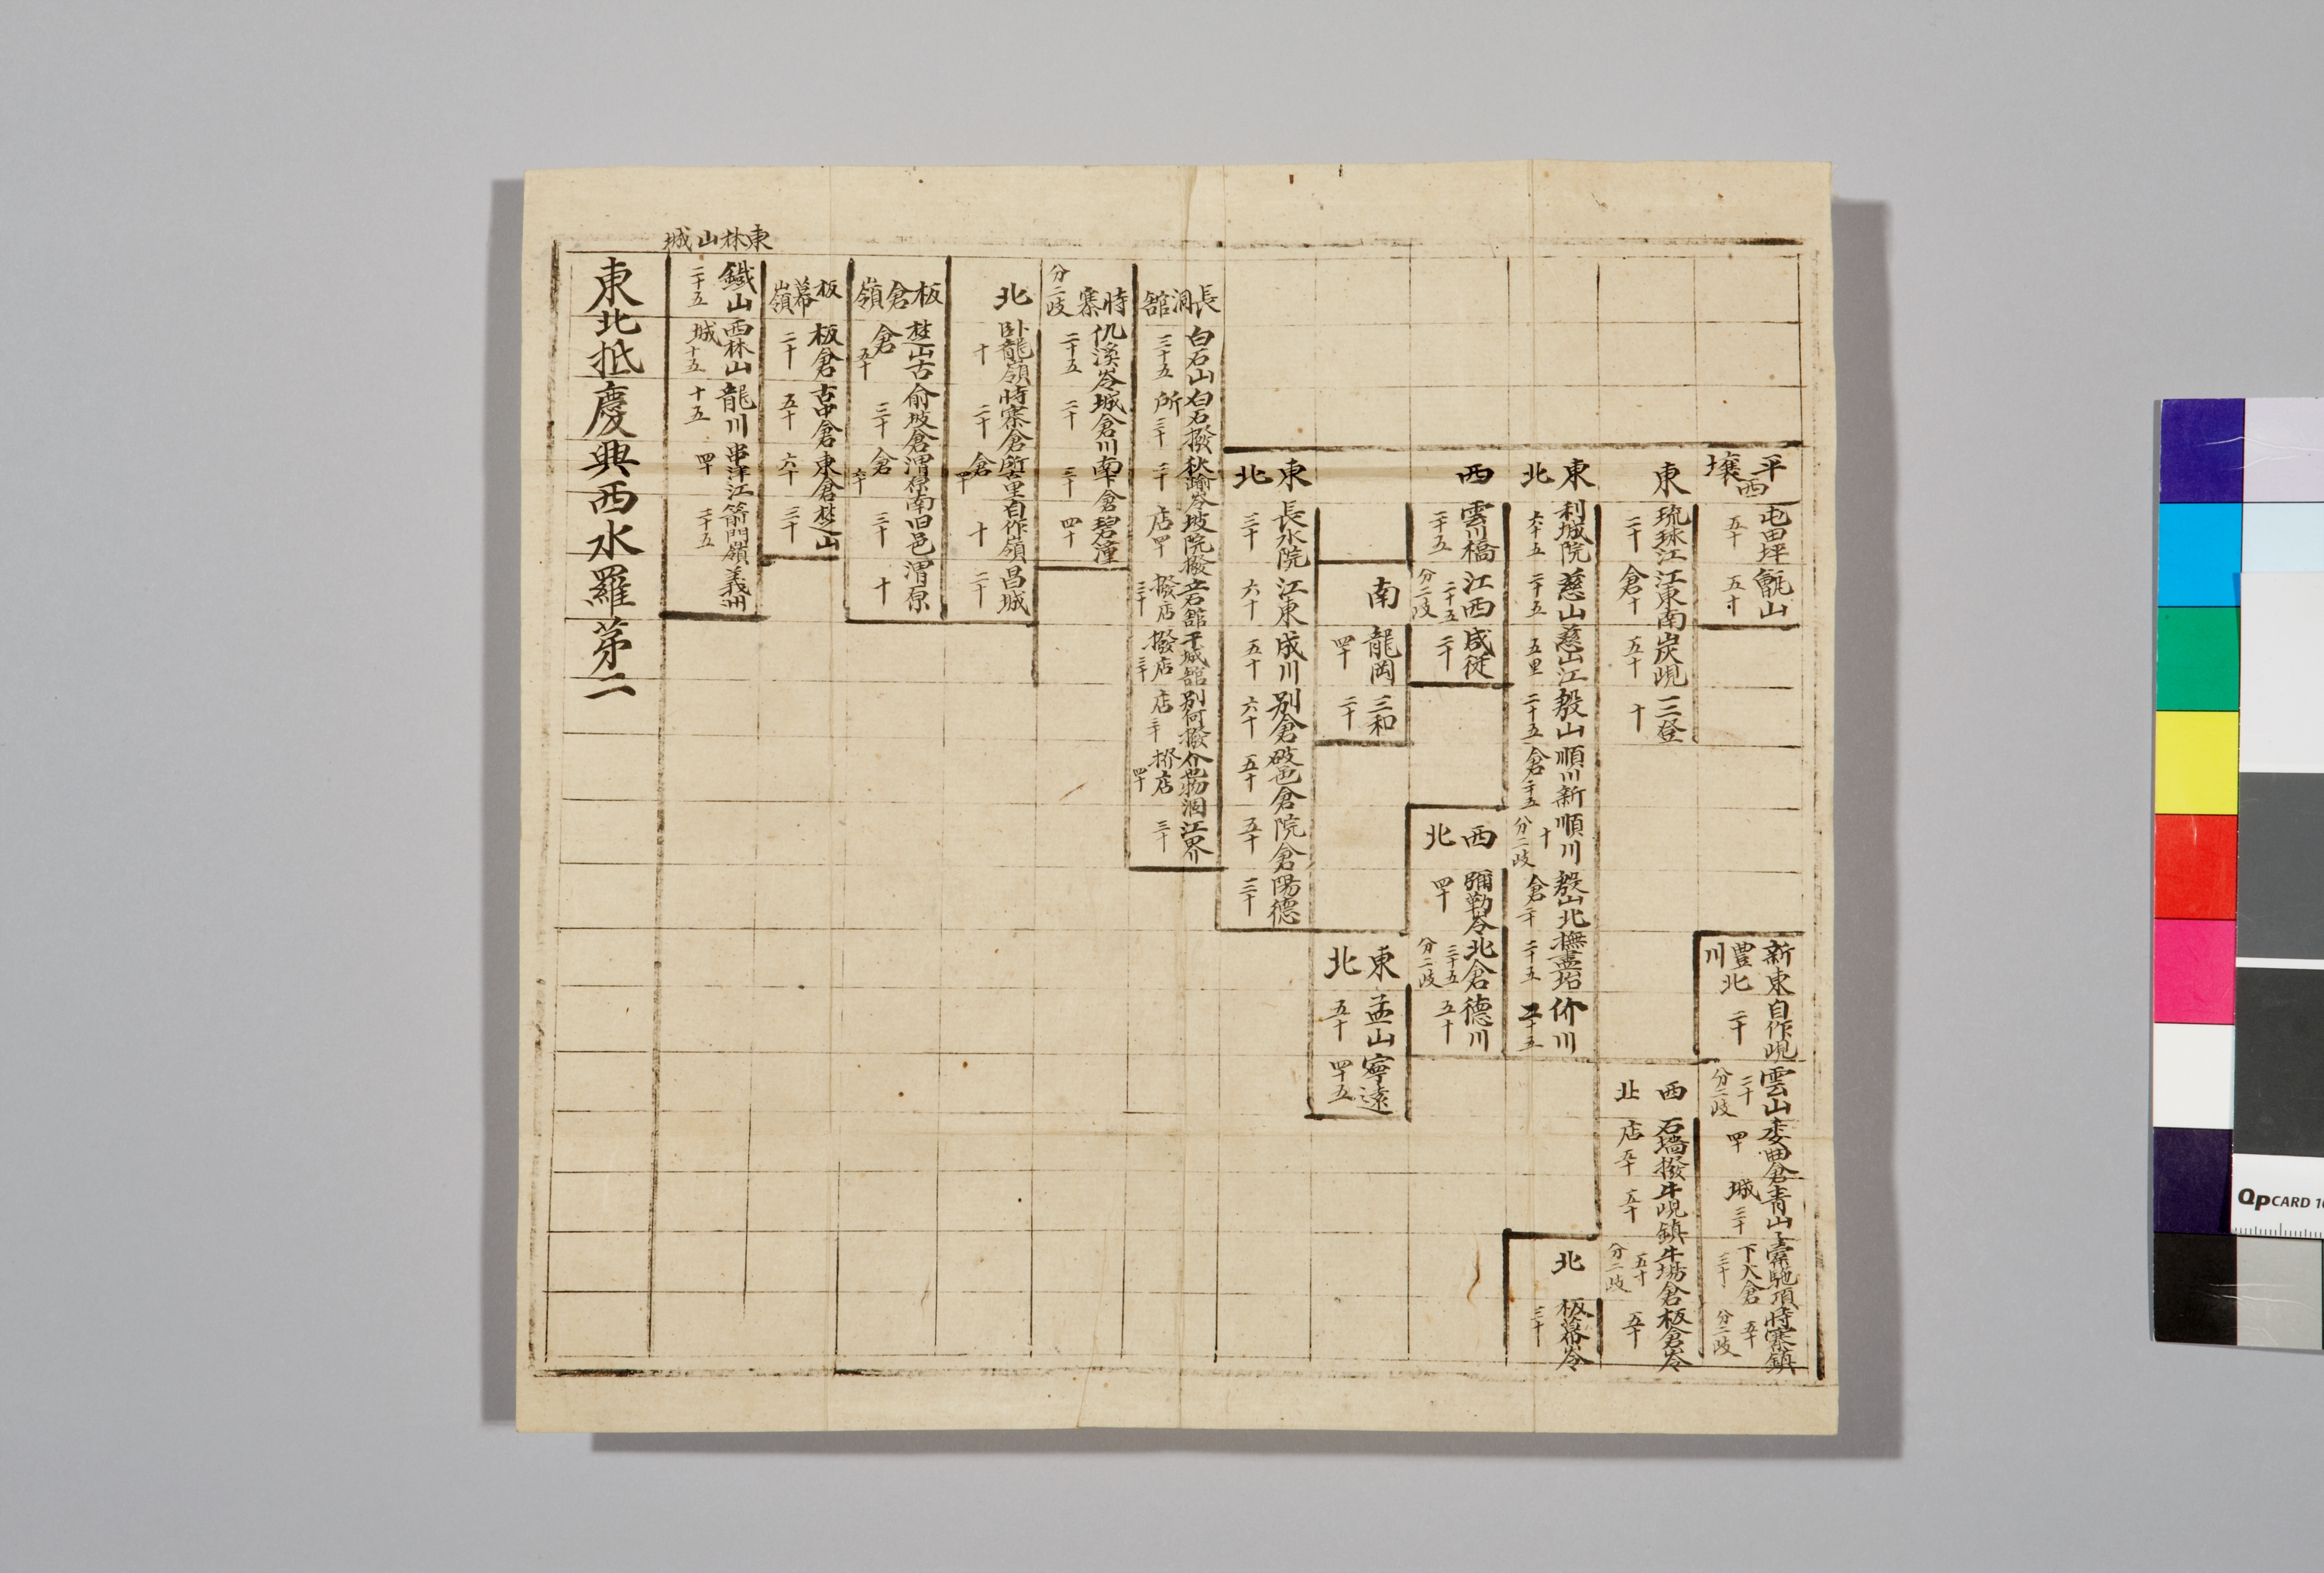 平壤西
屯田坪 五十
甑山 五十
新豊川東北
自作峴 二十
雲山 二十 分二歧
委曲倉 四十
城 三十
下大倉 三十
時寨鎮 五十 分二歧
東
琉球江 二十
江東南倉 十
炭峴 五十
三登 十
西北
石墻撥店 五十
牛峴鎮 五十
牛場倉 五十 分二歧
板倉岺 五十
東北
利城院 六十五
慈山 二十五
慈山江 五里
殷山 二十五
順川新倉 二十五
順川 十 分二歧
殷山北倉 二十
撫盡坮 二十五
价川 二十五
北
板幕岺 三十
西
雲川橋 二十五
江西 二十五 分二歧
咸從 二十
西北
彌勒岺 四十
北倉 三十五 分二歧
德川 五十
南
龍岡 四十
三和 二十
東北
孟山 五十
寧遠 四十五
東北
長水院 三十
江東 六十
成川 五十
別倉 六十
破邑倉 五十
院倉 五十
陽德 三十
長洞舘
白石山 三十五
白石撥所 三十
狄踰岺 二十
坡院撥店 四十
立石舘撥店 三十
干城舘撥店 三十
別何撥店 三十
江界 三十
時寨 分二歧
仇溪岺 二十五
城倉 二十
川南下倉 三十
碧潼 四十
北
卧龍嶺 十
時寨倉 二十
自作嶺 十
昌城 二十
板倉嶺
楚山古倉 五十
俞坡倉 三十
渭原南倉 六十
旧邑 三十
渭原 十
板幕嶺
板倉 二十
古中倉 五十
東倉 六十
楚山 三十
東林山城
鐵山 二十五
西林山城 十五
龍川 十五
串津江 四十
箭門嶺 二十五
義州
東北抵慶興西水羅苐二